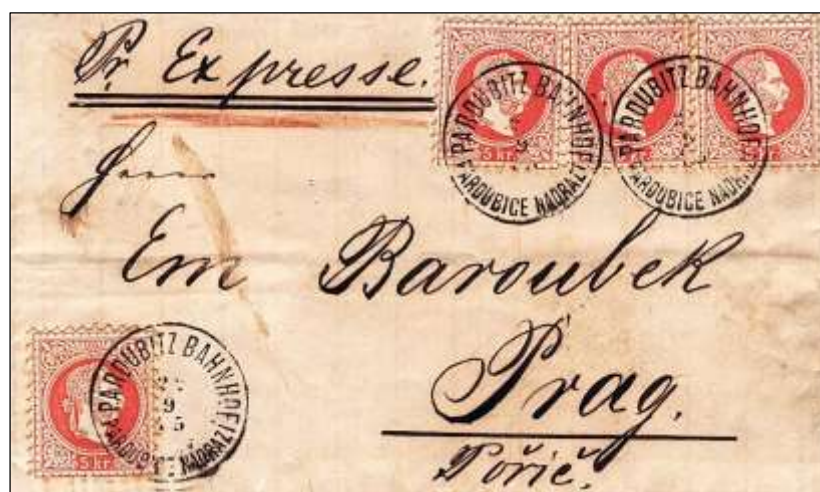 Pr Expresse.
5 kr.
PARDUBITZ BAHNHOF
PARDUBICE NADRAŽI
PARDUBITZ BAHNHOF
PARDUBICE NADRAŽI
9
Herrn
Em Baroubek
Prag.
Pořič.
PARDUBITZ BAHNHOF
PARDUBICE NADRAŽI
9
5
5 kr.